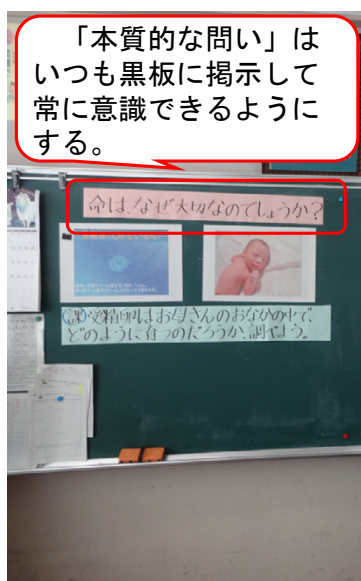 「本質的な問い」は
いつも黒板に掲示して
常に意識できるように
する。
命は、なぜ大切なのでしょうか?
課 受精卵はお母さんのおなかの中で、
どのように育つのだろうか、調べよう。